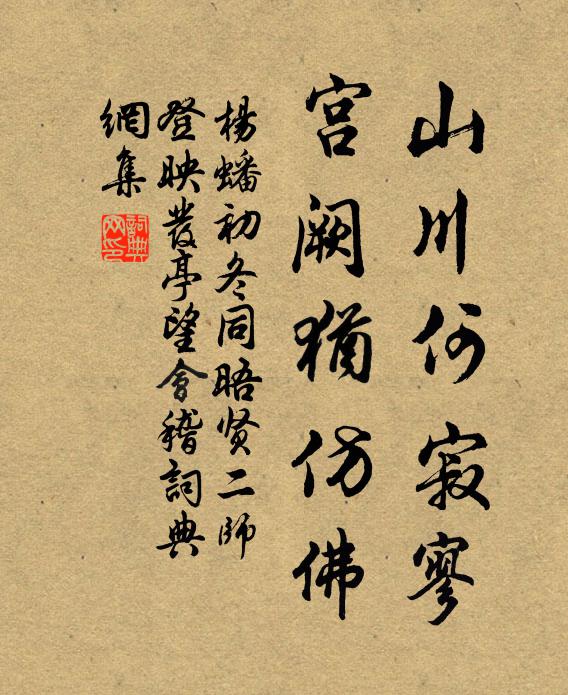 山川何寂寥
宫阙犹仿佛
杨蟠初冬同晤贤二师
登映发亭望会稽词典
網集
詞典
网印